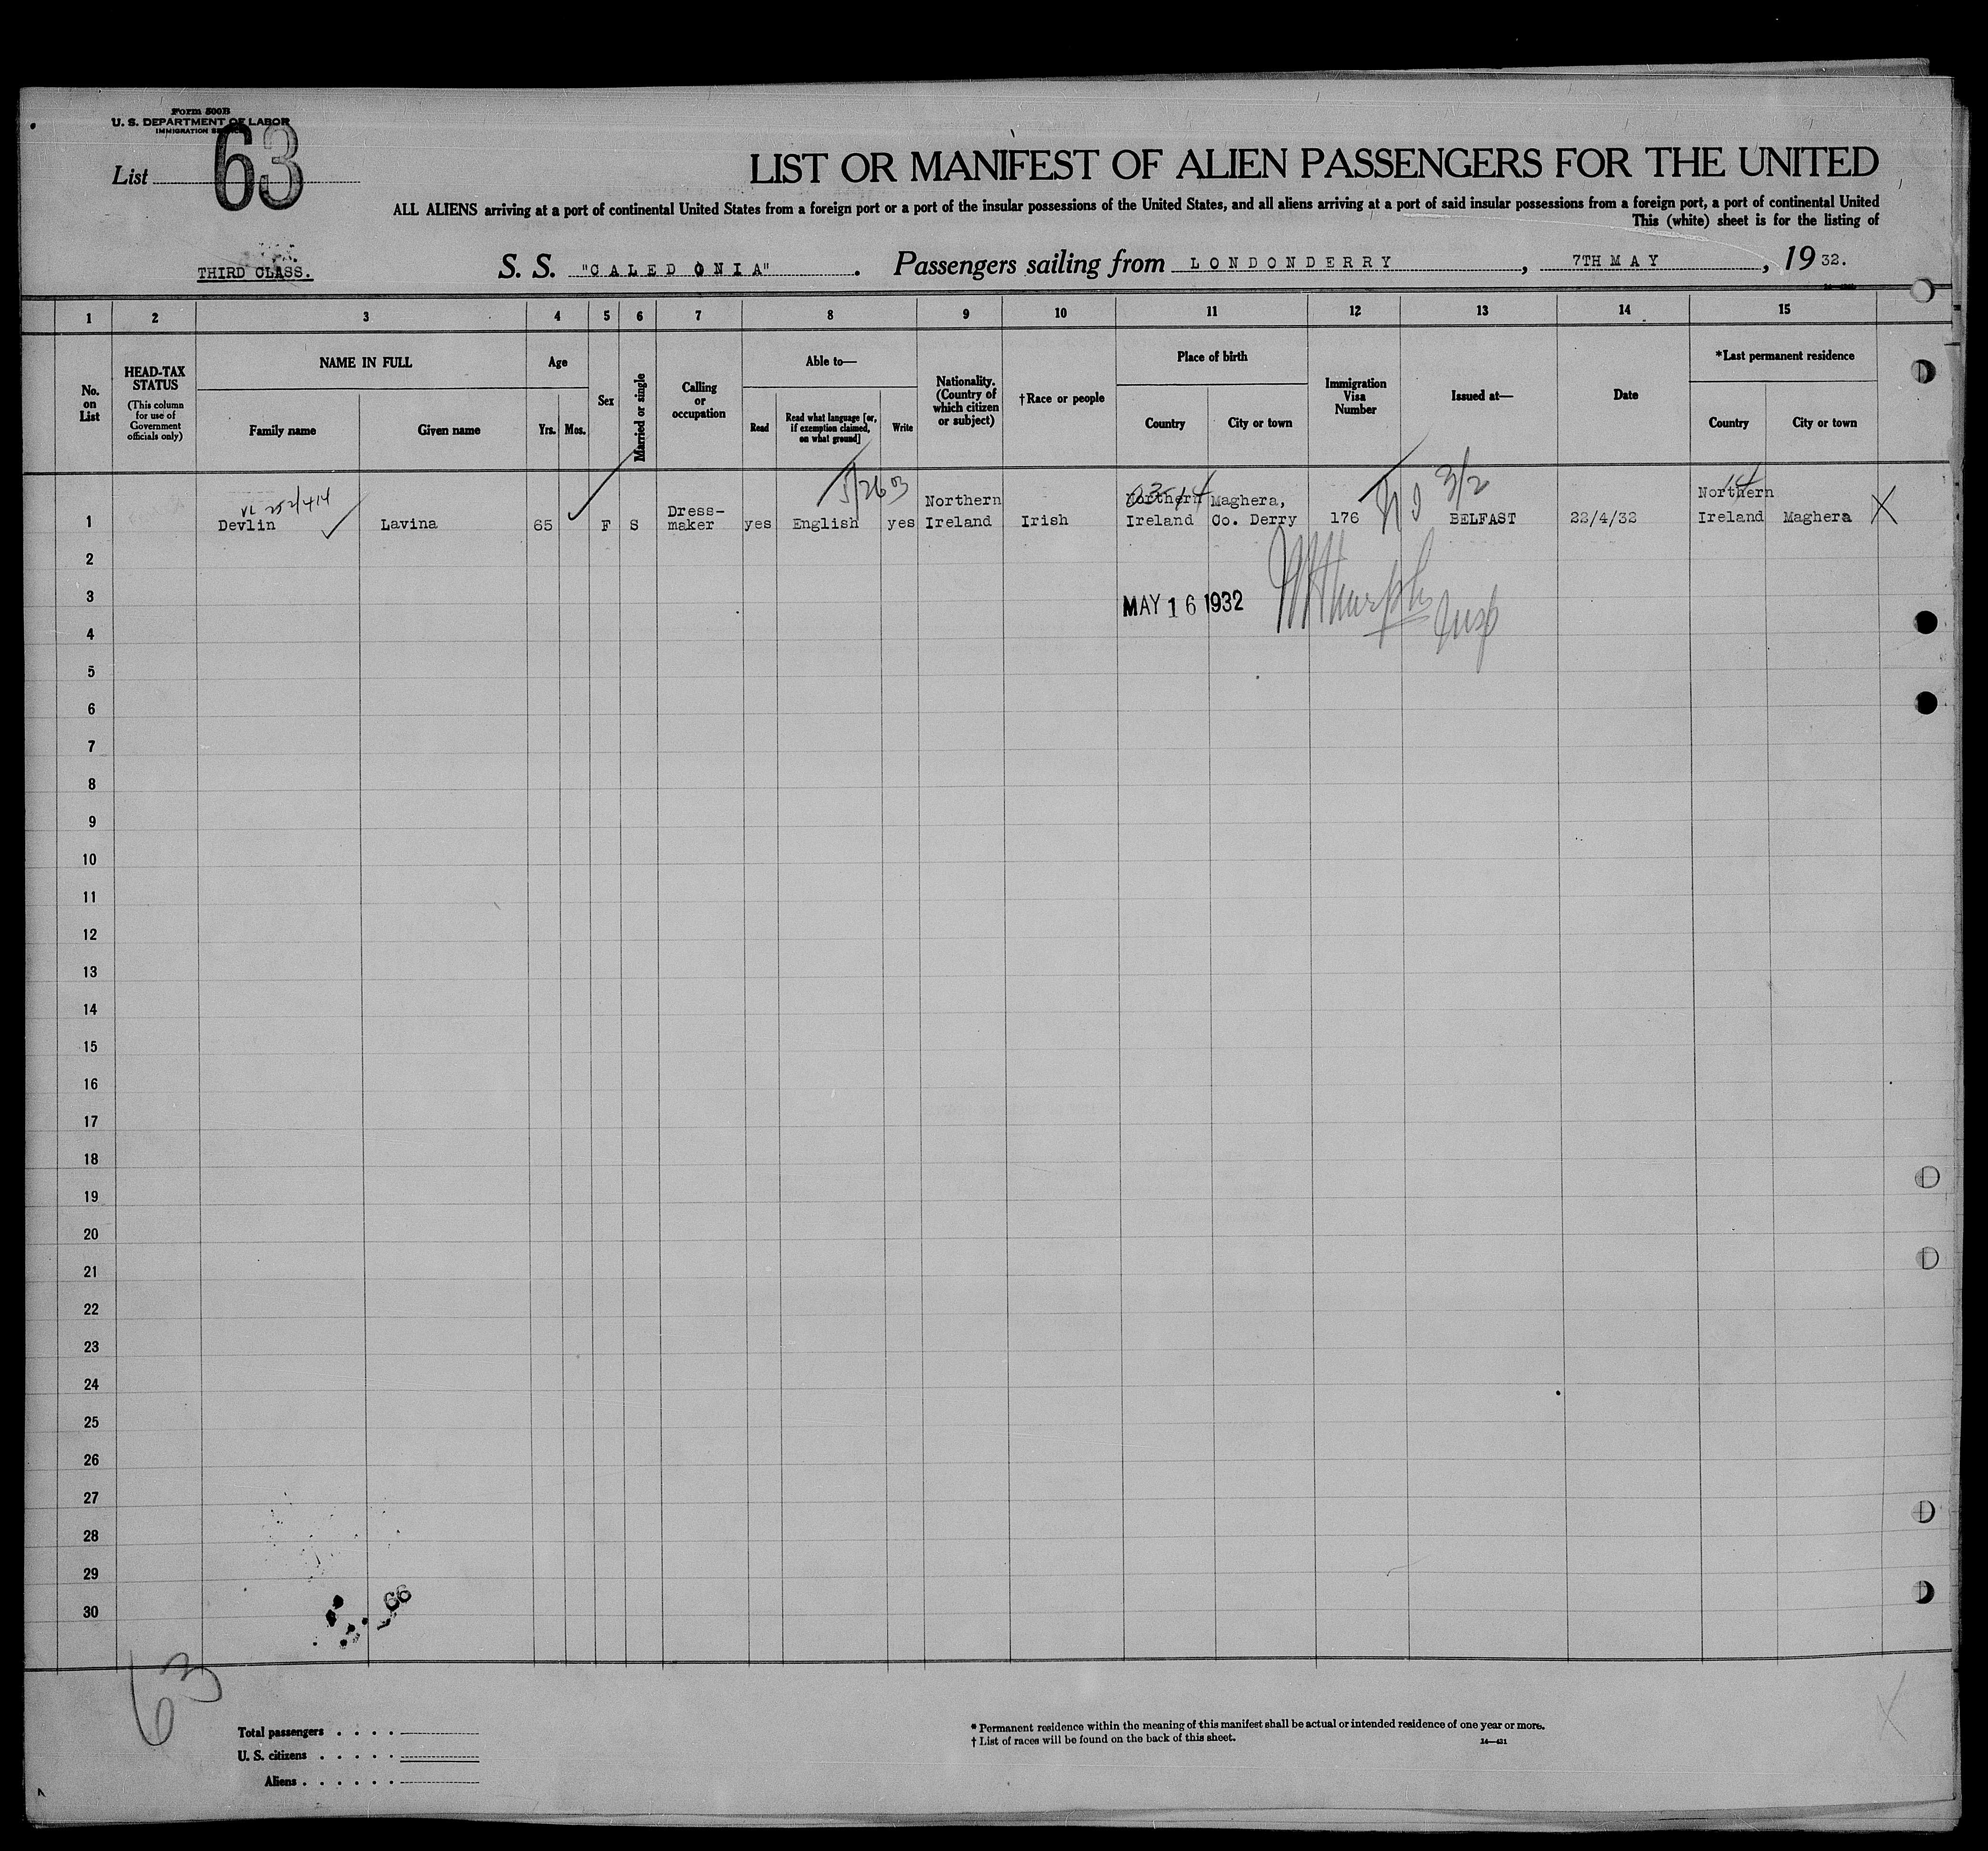 Form 500B
U. S. DEPARTMENT OF LABOR
IMMIGRATION SERVICE
List 63
LIST OR MANIFEST OF ALIEN PASSENGERS FOR THE UNITED
ALL ALIENS arriving at a port of continental United States from a foreign port or a port of the insular possessions of the United States, and all aliens arriving at a port of said insular possessions from a foreign port, a port of continental United
This (white) sheet is for the listing of
THIRD CLASS.
S. S. "CALEDONIA". Passengers sailing from LONDONDERRY, 7TH MAY, 1932.
1 2 3 4 5 6 7 8 9 10 11 12 13 14 15
No. on List
HEAD-TAX STATUS
(This column for use of Government officials only)
NAME IN FULL
Family name
Given name
Age
Yrs. Mos.
Sex
Married or single
Calling or occupation
Able to—
Read
Read what language [or, if exemption claimed, on what ground]
Write
Nationality. (Country of which citizen or subject)
†Race or people
Place of birth
Country
City or town
Immigration Visa Number
Issued at—
Date
*Last permanent residence
Country
City or town
VL 252/414
5/26 03
03-14
NI 3/2
14
1 Devlin Lavina 65 F S Dress-maker yes English yes Northern Ireland Irish Northern Ireland Maghera, Co. Derry 176 BELFAST 22/4/32 Northern Ireland Maghera X
2
3
MAY 16 1932
4
5
6
7
8
9
10
11
12
13
14
15
16
17
18
19
20
21
22
23
24
25
26
27
28
29
30
66
63
Total passengers . . . .
U. S. citizens . . . . .
Aliens . . . . . .
* Permanent residence within the meaning of this manifest shall be actual or intended residence of one year or more.
† List of races will be found on the back of this sheet.
14—431
X